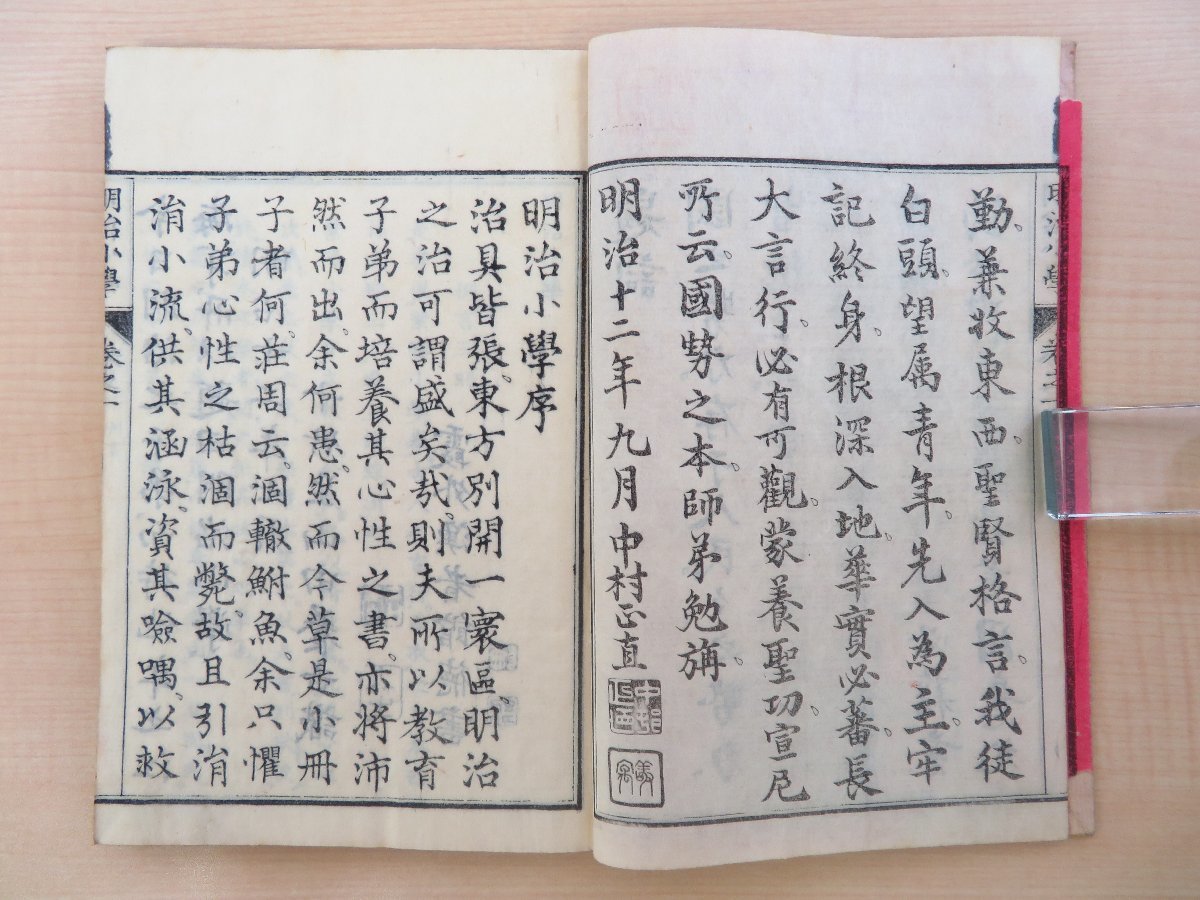 勤、兼收東西、聖賢格言、我徒
白頭、望属青年、先入為主、牢
記終身、根深入地、華實必蕃、長
大言行、必有可觀、蒙養聖功、宣尼
所云、國勢之本、師弟勉旃、
明治十二年九月中村正直
明治小學序
治具皆張、東方別開一寰區、明治
之治可謂盛矣哉、則夫所以教育
子弟而培養其心性之書、亦將沛
然而出、余何患、然而今草是小冊
子者何、莊周云、涸轍鮒魚、余只懼
子弟心性之枯涸而斃、故且引涓
涓小流、供其涵泳、資其噞喁、以救
明治小學 卷之一